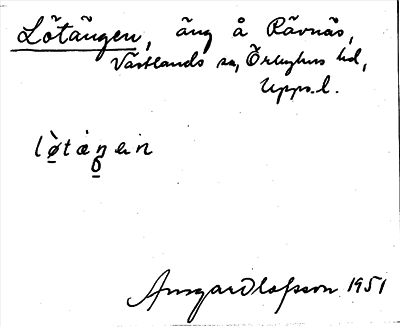 Lötängen, äng å Rävnäs,
Västlands sn, Örbyhus hd,
Upps. l.
Ansgar Olofsson 1951